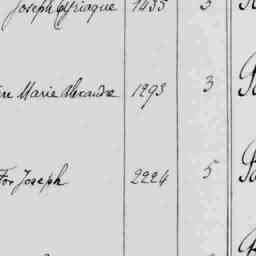 Joseph Cyriaque 1435 3
re Marie Alexandre 1293 3
For Joseph 2224 5